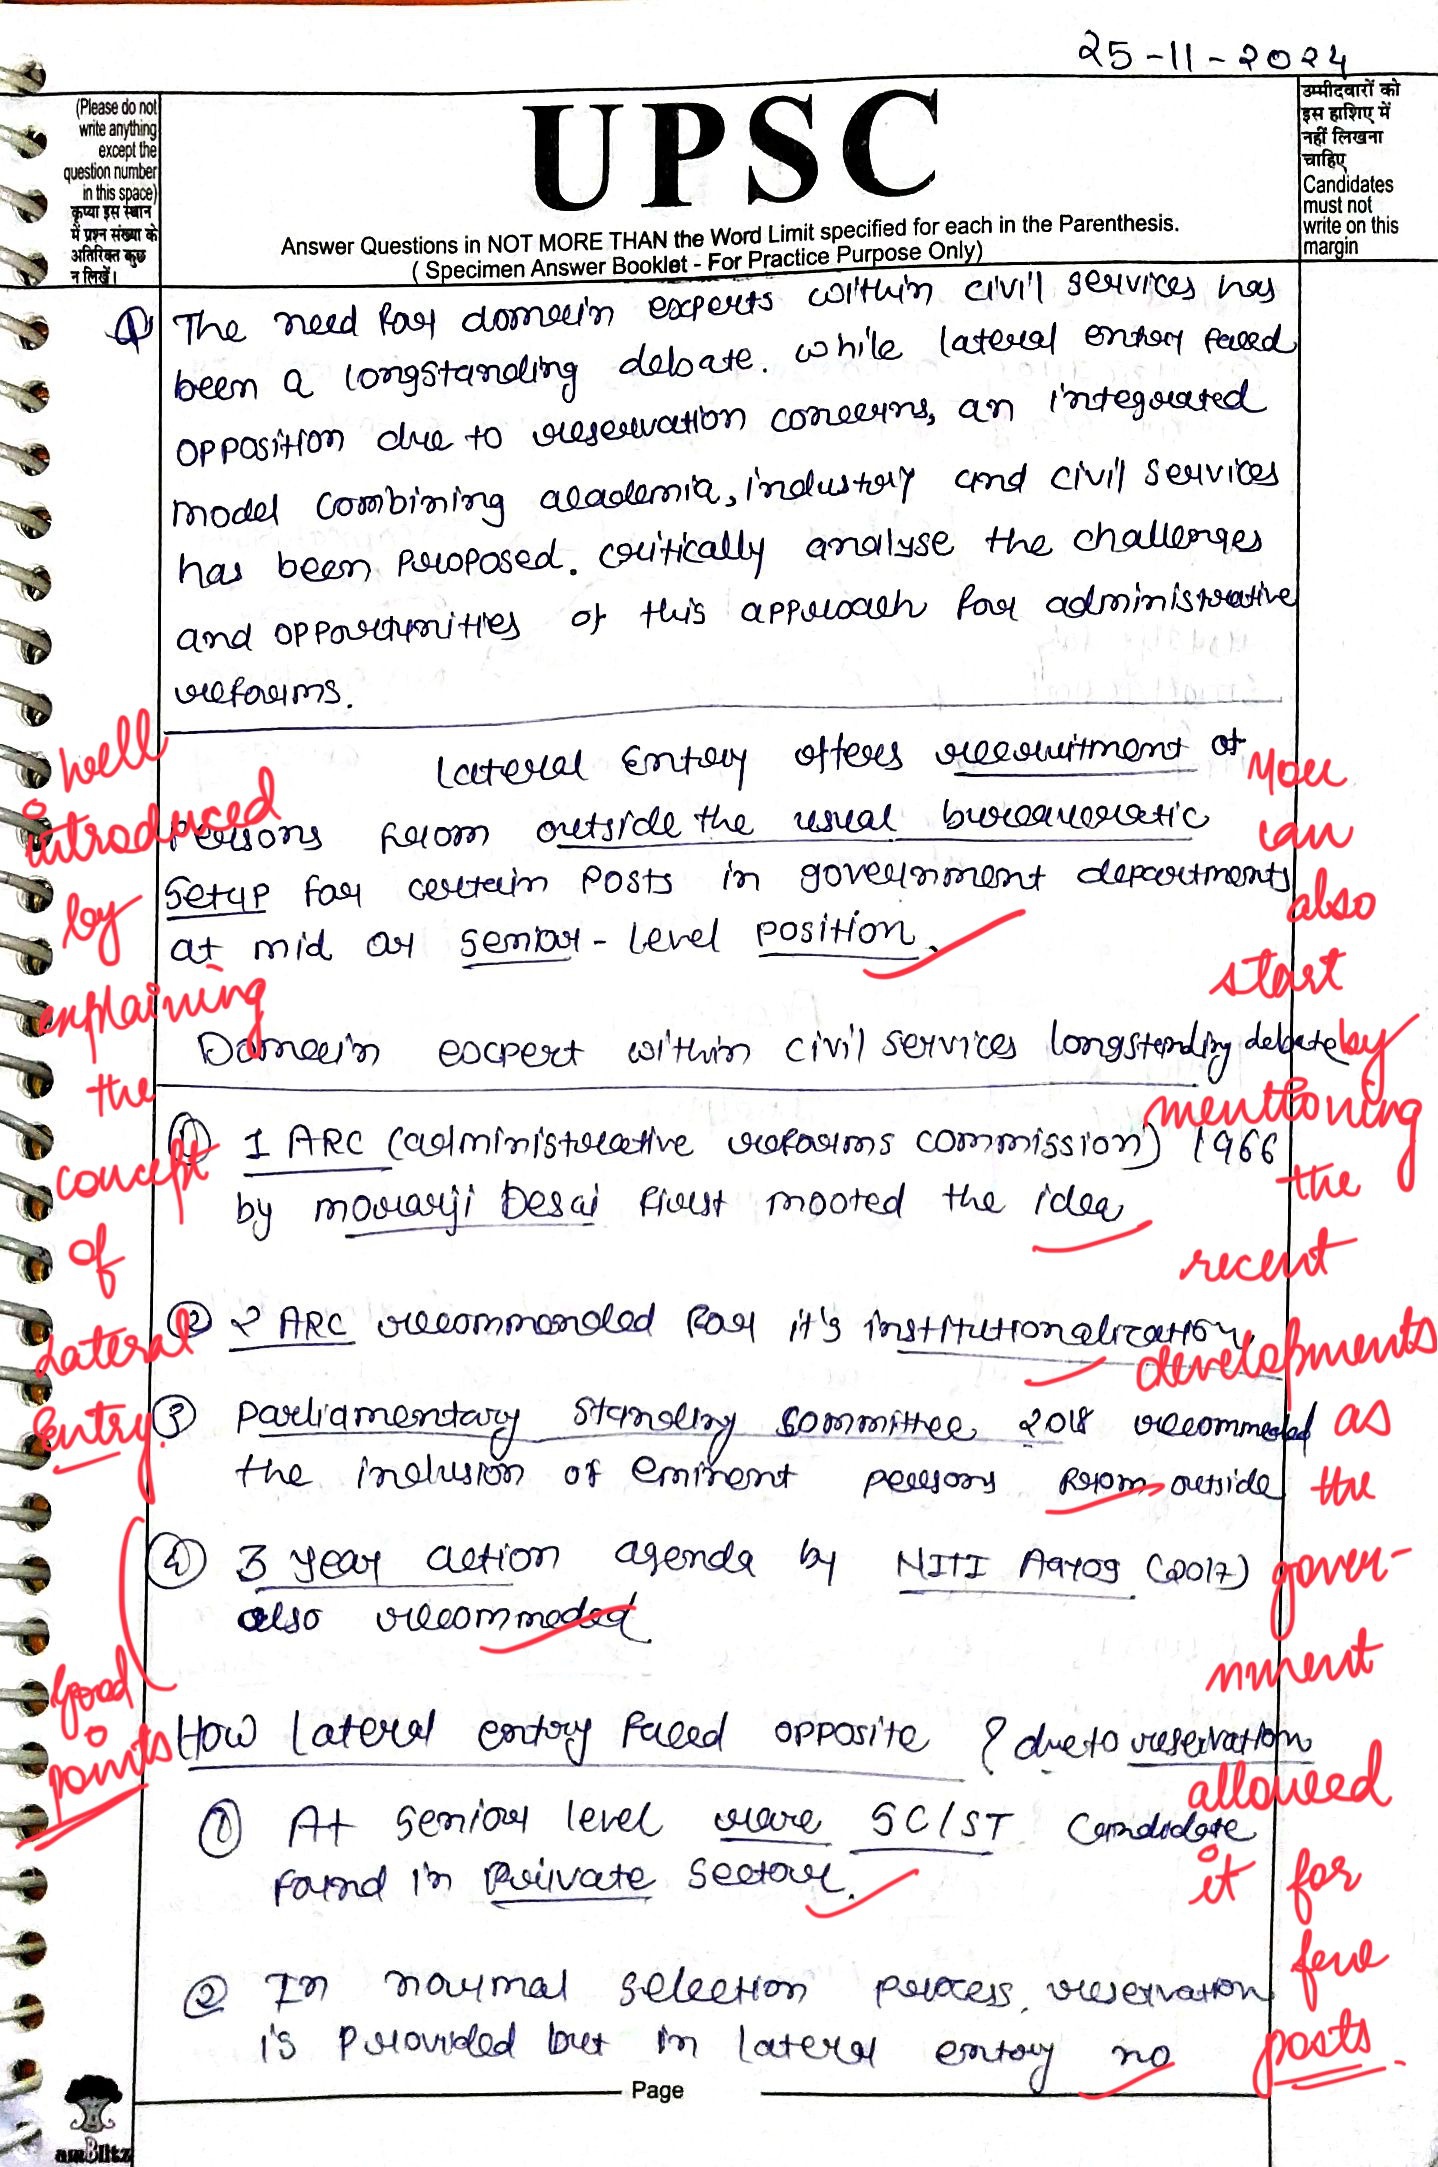 25-11-2024
(Please do not
write anything
except the
question number
in this space)
कृप्या इस स्थान
में प्रश्न संख्या के
अतिरिक्त कुछ
न लिखें।
UPSC
Answer Questions in NOT MORE THAN the Word Limit specified for each in the Parenthesis.
( Specimen Answer Booklet - For Practice Purpose Only)
उम्मीदवारों को
इस हाशिए में
नहीं लिखना
चाहिए
Candidates
must not
write on this
margin
Q The need for domain experts within civil services has
been a longstanding debate. while lateral entry faced
opposition due to reservation concerns, an integrated
model combining academia, industry and civil services
has been proposed. critically analyse the challenges
and opportunities of this approach for administrative
reforms.
Lateral Entry offers recruitment of
persons from outside the usual bureaucratic
setup for certain posts in government departments
at mid or senior-level position.
Domain expert within civil services longstanding debate
① 1 ARC (administrative reforms commission) 1966
by morarji Desai first mooted the idea
② 2 ARC recommended for it's institutionalization
③ Parliamentary standing committee 2018 recommended
the inclusion of eminent persons from outside
④ 3 year action agenda by NITI Aayog (2017)
also recommeded
How lateral entry faced opposite ? due to reservation
① At senior level rare SC/ST candidate
found in private sector.
② In normal selection process, reservation
is provided but in lateral entry no
well
introduced
by
explaining
the
concept
of
Lateral
Entry.
Good
points
You
can
also
start
by
mentioning
the
recent
developments
as
the
gover-
nment
allowed
it for
few
posts.
Page
amBlitz